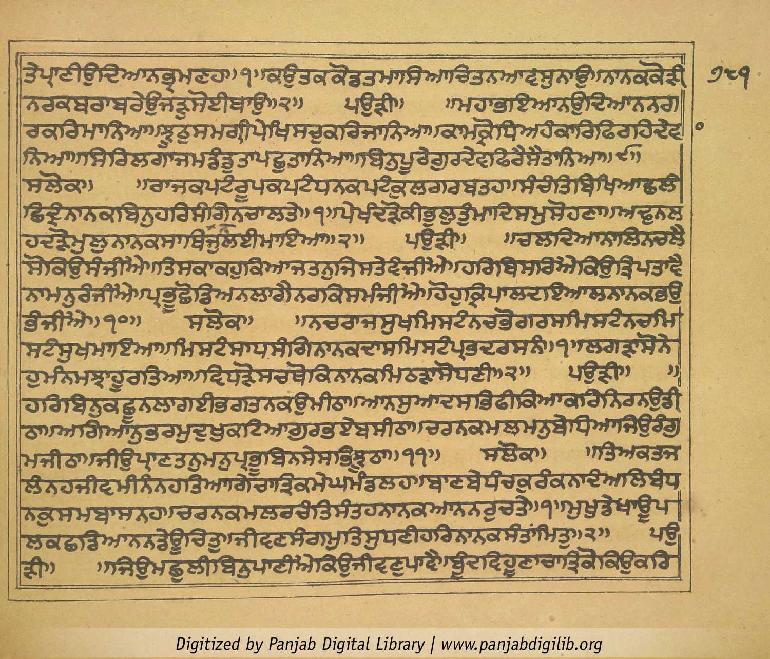 ਤੇਪ੍ਰਾਣੀਉਦਿਆਨਭ੍ਰਮਣਹ॥੧॥ਕਉਤਕਕੋਡਤਮਾਸਿਆਚਿਤਨਆਵਸੁਨਾਉ॥ਨਾਨਕਕੋੜੀ
੭੮੧
ਨਰਕਬਰਾਬਰੇਉਜੜੁਸੋਈਥਾਉ॥੨॥ ਪਉੜੀ॥ ॥ਮਹਾਭਇਆਨਉਦਿਆਨਨਗ
ਰਕਰਿਮਾਨਿਆ॥ਝੂਠਸਮਗ੍ਰੀਪੇਖਿਸਚੁਕਰਿਜਾਨਿਆ॥ਕਾਮਕ੍ਰੋਧਿਅਹੰਕਾਰਿਫਿਰਹਿਦੇਵ
ਨਿਆ॥ਸਿਰਿਲਗਾਜਮਡੰਡੁਤਾਪਛੁਤਾਨਿਆ॥ਬਿਨੁਪੂਰੇਗੁਰਦੇਵਫਿਰੈਸੈਤਾਨਿਆ॥੯॥
ਸਲੋਕ॥ ॥ਰਾਜਕਪਟੰਰੂਪਕਪਟੰਧਨਕਪਟੰਕੁਲਗਰਬਤਹ॥ਸੰਚੰਤਿਬਿਖਿਆਛਲੰ
ਛਿਦ੍ਰੰਨਾਨਕਬਿਨੁਹਰਿਸੰਗਿਨਚਾਲਤੇ॥੧॥ਪੇਖੰਦੜੋਕੀਭੁਲੁਤੁੰਮਾਦਿਸਮੁਸੋਹਣਾ॥ਅਢੁਨਲ
ਹੰਦੜੋਮੁਲੁਨਾਨਕਸਾਥਿਨਜੁਲਈਮਾਇਆ॥੨॥ ਪਉੜੀ॥ ॥ਚਲਦਿਆਨਾਲਿਨਚਲੈ
ਸੋਕਿਉਸੰਜੀਐ॥ਤਿਸਕਾਕਹੁਕਿਆਜਤਨੁਜਿਸਤੇਵੰਜੀਐ॥ਹਰਿਬਿਸਰਿਐਕਿਉਤ੍ਰਿਪਤਾਵੈ
ਨਾਮਨੁਰੰਜੀਐ॥ਪ੍ਰਭੂਛੋਡਿਅਨਲਾਗੈਨਰਕਿਸਮੰਜੀਐ॥ਹੋਹੁਕ੍ਰਿਪਾਲਦਇਆਲਨਾਨਕਭਉ
ਭੰਜੀਐ॥੧੦॥ ਸਲੋਕ॥ ॥ਨਚਰਾਜਸੁਖਮਿਸਟੰਨਚਭੋਗਰਸਮਿਸਟੰਨਚਮਿ
ਸਟੰਸੁਖਮਾਇਆ॥ਮਿਸਟੰਸਾਧਸੰਗਿਨਾਨਕਦਾਸਮਿਸਟੰਪ੍ਰਭਦਰਸਨੰ॥੧॥ਲਗੜਾਸੋਨੇ
ਹੁਮੰਨਮਝਾਹੂਰਤਿਆ॥ਵਿਧੜੋਸਚਥੋਕਿਨਾਨਕਮਿਠੜਾਸੋਧਣੀ॥੨॥ ਪਉੜੀ॥ ॥
ਹਰਿਬਿਨੁਕਛੂਨਲਾਗਈਭਗਤਨਕਉਮੀਠਾ॥ਆਨਸੁਆਦਸਭਿਫੀਕਿਆਕਰਿਨਿਰਨਉਡੀ
ਠਾ॥ਅਗਿਆਨੁਭਰਮੁਦੁਖੁਕਟਿਆਗੁਰਭਏਬਸੀਠਾ॥ਚਰਨਕਮਲਮਨੁਬੇਧਿਆਜਿਉਰੰਗੁ
ਮਜੀਠਾ॥ਜੀਉਪ੍ਰਾਣਤਨੁਮਨੁਪ੍ਰਭੂਬਿਨਸੇਸਭਿਝੂਠਾ॥੧੧॥ ਸਲੋਕ॥ ॥ਤਿਅਕਤਜ
ਲੰਨਹਜੀਵਮੀਨੰਨਹਤਿਆਗਿਚਾਤ੍ਰਿਕਮੇਘਮੰਡਲਹ॥ਬਾਣਬੇਧੰਚਕੁਰੰਕਨਾਦੰਅਲਿਬੰਧ
ਨਕੁਸਮਬਾਸਨਹ॥ਚਰਨਕਮਲਰਚੰਤਿਸੰਤਹਨਾਨਕਆਨਨਰੁਚਤੇ॥੧॥ਮੁਖੁਡੇਖਾਊਪ
ਲਕਛਡਿਆਨਨਡੇਊਚਿਤੁ॥ਜੀਵਣਸੰਗਮੁਤਿਸੁਧਣੀਹਰਿਨਾਨਕਸੰਤਾਂਮਿਤੁ॥੨॥ ਪਉ
ੜੀ॥ ॥ਜਿਉਮਛੁਲੀਬਿਨੁਪਾਣੀਐਕਿਉਜੀਵਣੁਪਾਵੈ॥ਬੂੰਦਵਿਹੂਣਾਚਾਤ੍ਰਿਕੋਕਿਉਕਰਿ
Digitized by Panjab Digital Library | www.panjabdigilib.org